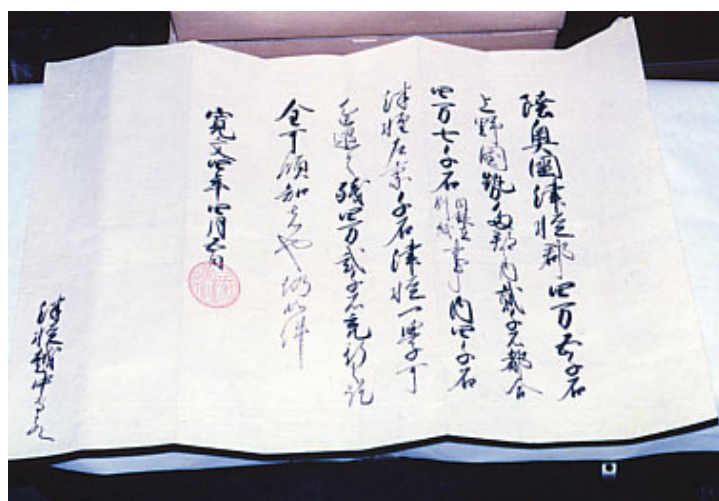 陸奥國津軽郡四万五千石
上野國勢多郡内貳千石都合
四万七千石目録在別紙事内四千石
津軽左京千石津軽一学可
進退之残四万貳千石充行之訖
全可領知者也仍如件
寛文四年四月五日
津軽越中守とのへ